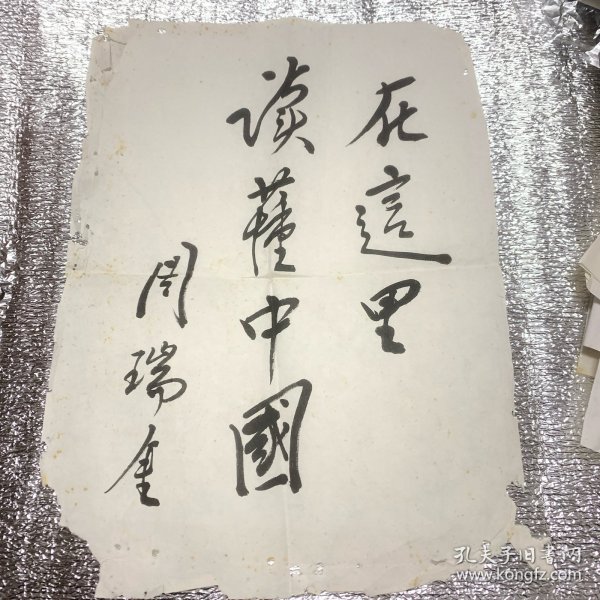 在這里
读懂中國
周瑞金
孔夫子旧书网
www.kongfz.com